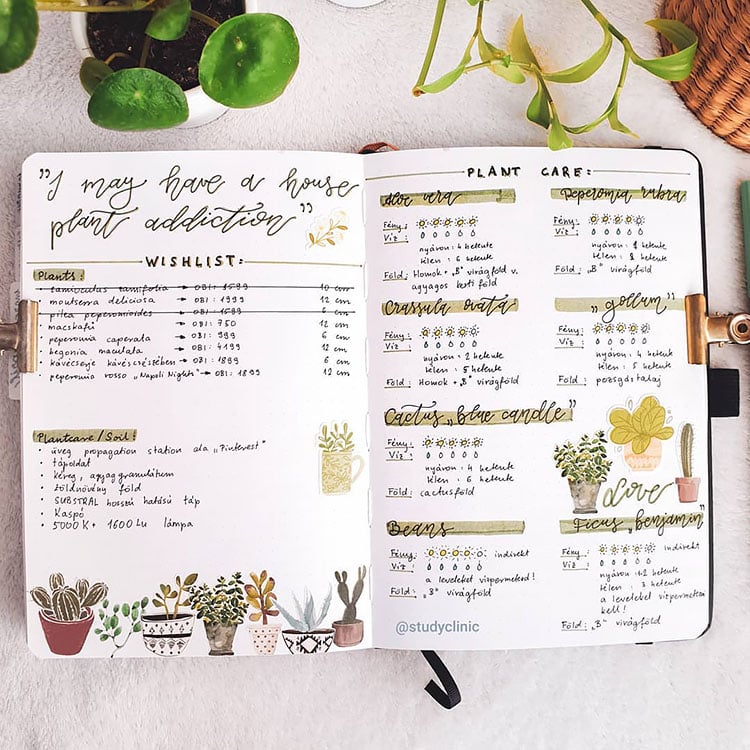 "I may have a house
plant addiction"
WISHLIST:
Plants:
tamifolia → OBI: 1599 10 cm
mounserra deliciosa → OBI: 1999 12 cm
pilea peperomioides → OBI: 1599 6 cm
macskafű → OBI: 750 12 cm
peperomia caperata → OBI: 999 6 cm
begonia maculata → OBI: 4199 12 cm
kávécserje kávéscsészében → OBI: 1899 6 cm
peperomia rosso „Napoli Nights" → OBI: 1899 12 cm
Plantcare/Soil:
üveg propagation station ala „Pinterest"
tápoldat
kéreg, agyaggranulátum
földnövény föld
SUBSTRAL hosszú hatású táp
Kaspó
5000 K + 1600 Lu lámpa
PLANT CARE:
Aloe vera
Fény:
Víz:
nyáron: 4 hetente
télen: 6 hetente
Föld: Homok + „B" virágföld v.
agyagos kerti föld
Crassula ovata
Fény:
Víz:
nyáron: 2 hetente
télen: 5 hetente
Föld: Homok + „B" virágföld
Cactus „blue candle"
Fény:
Víz:
nyáron: 4 hetente
télen: 6 hetente
Föld: cactusföld
Beans
Fény: indirekt
Víz:
a leveleket vízpermetezd!
Föld: „B" virágföld
@studyclinic
Peperomia rubra
Fény:
Víz:
nyáron: hetente
télen: hetente
Föld: „B" virágföld
„gollam"
Fény:
Víz:
nyáron: 4 hetente
télen: 5 hetente
Föld: pozsgás talaj
Love
Ficus „Benjamin"
Fény: indirekt
Víz:
nyáron: 1-2 hetente
télen: 3 hetente
a leveleket vízpermetezni
kell!
Föld: „B" virágföld